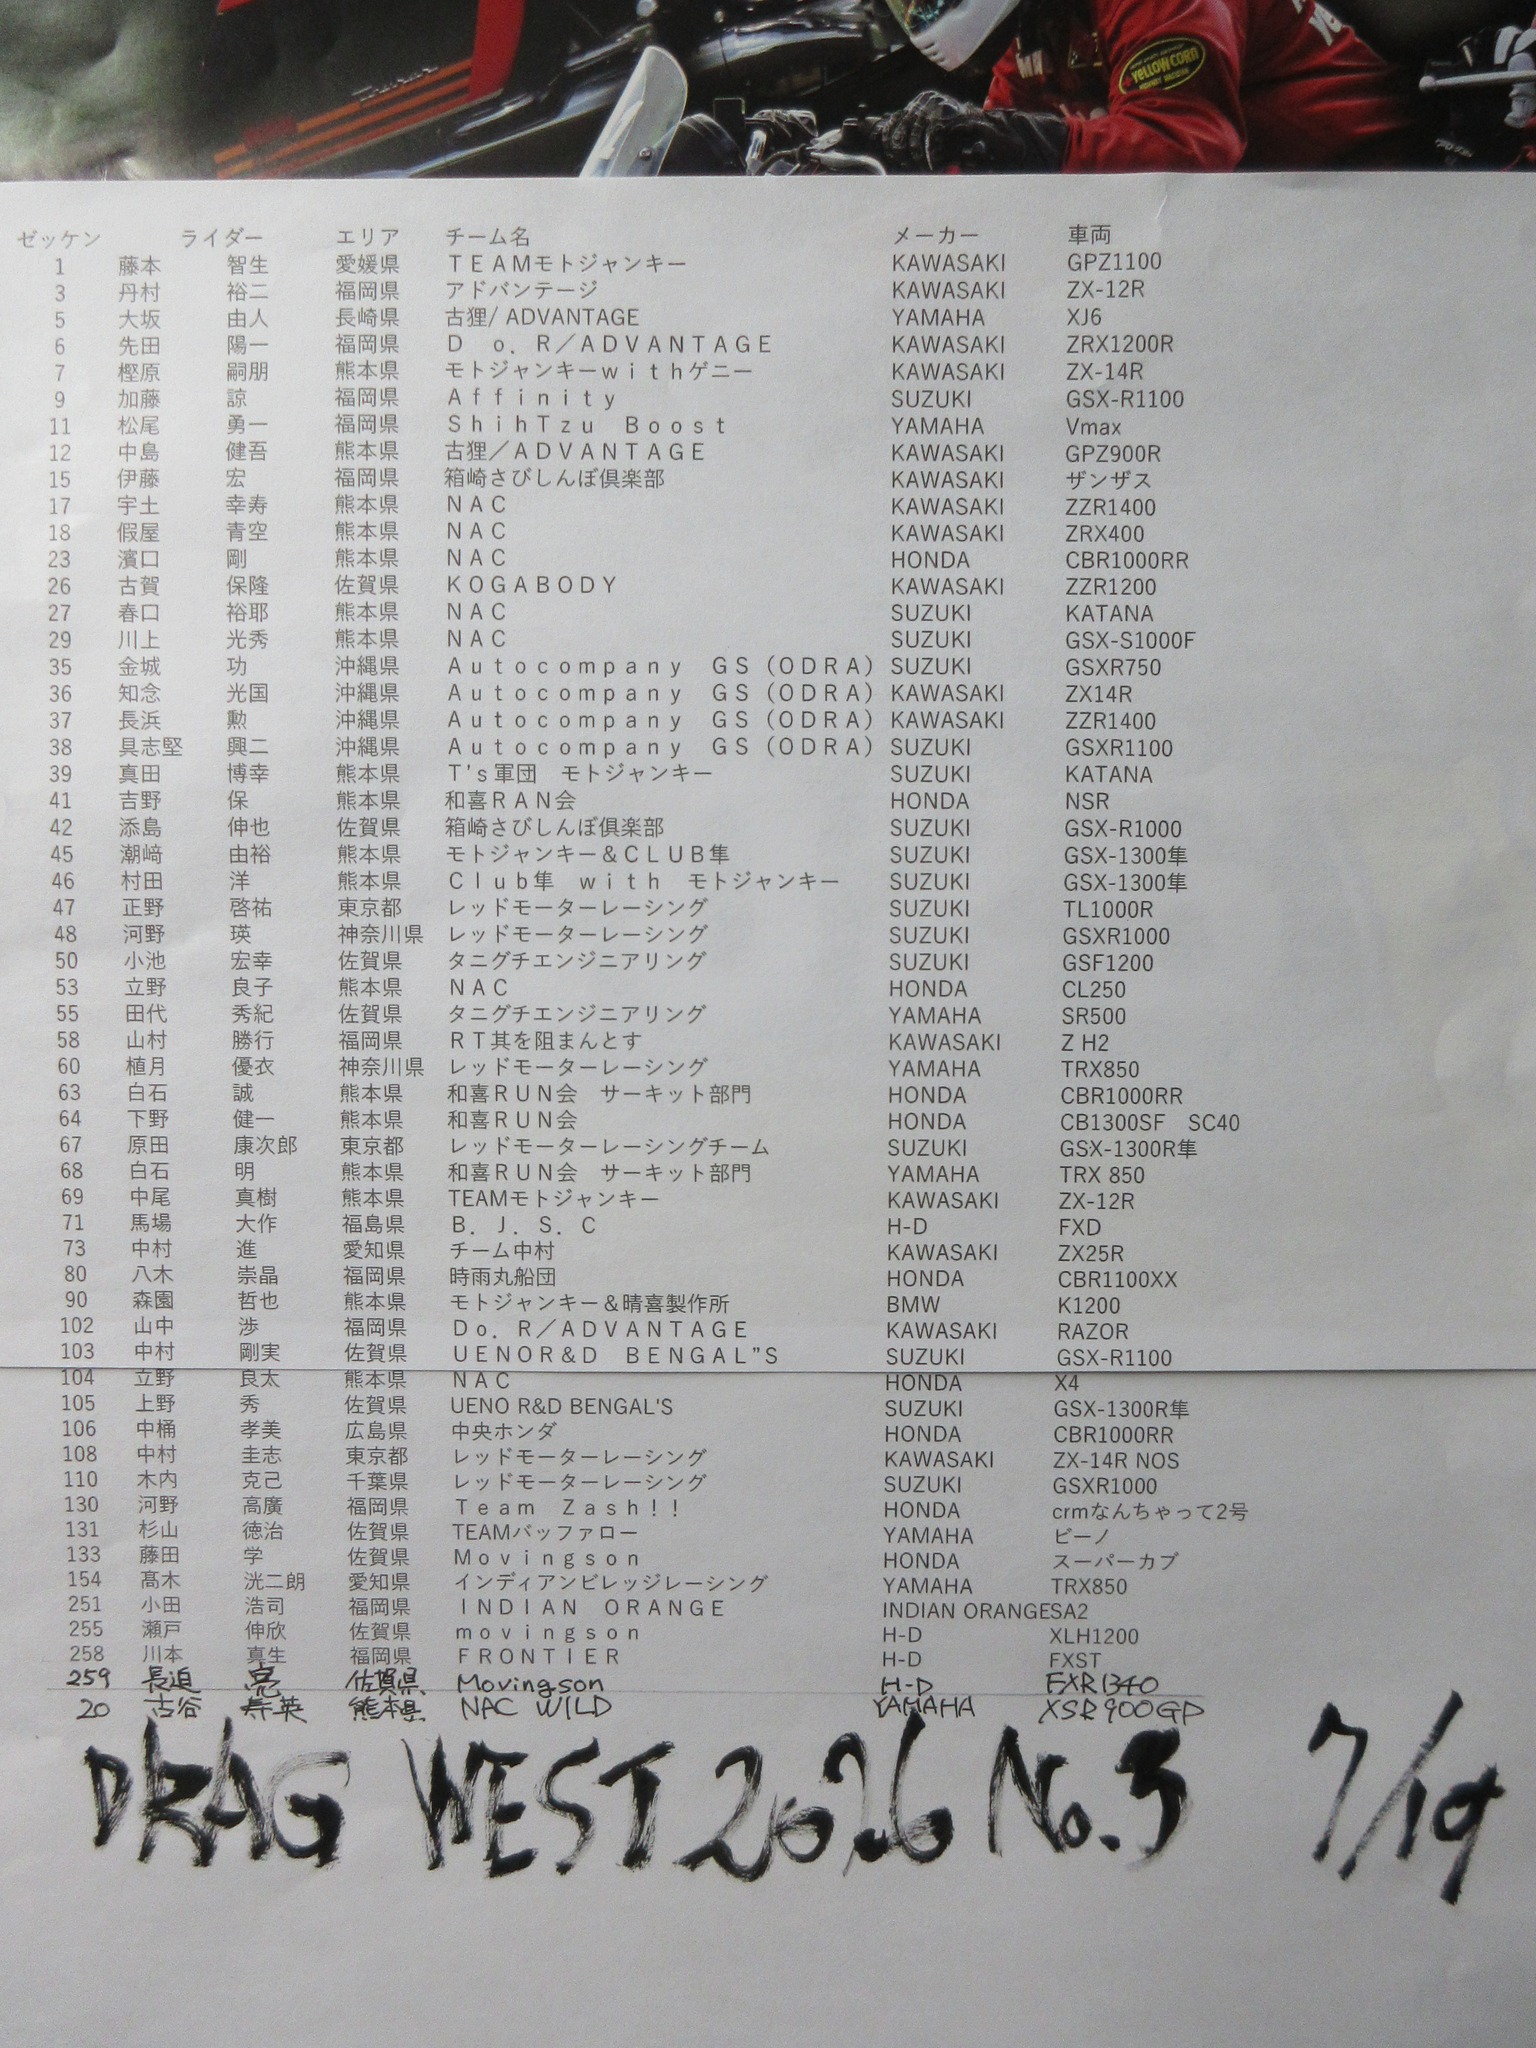 YELLOW CORN
ゼッケン ライダー エリア チーム名 メーカー 車両
1 藤本 智生 愛媛県 ＴＥＡＭモトジャンキー KAWASAKI GPZ1100
3 丹村 裕二 福岡県 アドバンテージ KAWASAKI ZX-12R
5 大坂 由人 長崎県 古狸/ ADVANTAGE YAMAHA XJ6
6 先田 陽一 福岡県 Ｄ　ｏ．Ｒ／ＡＤＶＡＮＴＡＧＥ KAWASAKI ZRX1200R
7 樫原 嗣朋 熊本県 モトジャンキーｗｉｔｈゲニー KAWASAKI ZX-14R
9 加藤 諒 福岡県 Ａｆｆｉｎｉｔｙ SUZUKI GSX-R1100
11 松尾 勇一 福岡県 ＳｈｉｈＴｚｕ　Ｂｏｏｓｔ YAMAHA Vmax
12 中島 健吾 熊本県 古狸／ＡＤＶＡＮＴＡＧＥ KAWASAKI GPZ900R
15 伊藤 宏 福岡県 箱崎さびしんぼ倶楽部 KAWASAKI ザンザス
17 宇土 幸寿 熊本県 ＮＡＣ KAWASAKI ZZR1400
18 假屋 青空 熊本県 ＮＡＣ KAWASAKI ZRX400
23 濱口 剛 熊本県 ＮＡＣ HONDA CBR1000RR
26 古賀 保隆 佐賀県 ＫＯＧＡＢＯＤＹ KAWASAKI ZZR1200
27 春口 裕耶 熊本県 ＮＡＣ SUZUKI KATANA
29 川上 光秀 熊本県 ＮＡＣ SUZUKI GSX-S1000F
35 金城 功 沖縄県 Ａｕｔｏｃｏｍｐａｎｙ　ＧＳ（ＯＤＲＡ） SUZUKI GSXR750
36 知念 光国 沖縄県 Ａｕｔｏｃｏｍｐａｎｙ　ＧＳ（ＯＤＲＡ） KAWASAKI ZX14R
37 長浜 勲 沖縄県 Ａｕｔｏｃｏｍｐａｎｙ　ＧＳ（ＯＤＲＡ） KAWASAKI ZZR1400
38 具志堅 興二 沖縄県 Ａｕｔｏｃｏｍｐａｎｙ　ＧＳ（ＯＤＲＡ） SUZUKI GSXR1100
39 真田 博幸 熊本県 Ｔ'ｓ軍団　モトジャンキー SUZUKI KATANA
41 吉野 保 熊本県 和喜ＲＡＮ会 HONDA NSR
42 添島 伸也 佐賀県 箱崎さびしんぼ倶楽部 SUZUKI GSX-R1000
45 潮﨑 由裕 熊本県 モトジャンキー＆ＣＬＵＢ隼 SUZUKI GSX-1300隼
46 村田 洋 熊本県 Ｃｌｕｂ隼　ｗｉｔｈ　モトジャンキー SUZUKI GSX-1300隼
47 正野 啓祐 東京都 レッドモーターレーシング SUZUKI TL1000R
48 河野 瑛 神奈川県 レッドモーターレーシング SUZUKI GSXR1000
50 小池 宏幸 佐賀県 タニグチエンジニアリング SUZUKI GSF1200
53 立野 良子 熊本県 ＮＡＣ HONDA CL250
55 田代 秀紀 佐賀県 タニグチエンジニアリング YAMAHA SR500
58 山村 勝行 福岡県 ＲＴ其を阻まんとす KAWASAKI Z H2
60 植月 優衣 神奈川県 レッドモーターレーシング YAMAHA TRX850
63 白石 誠 熊本県 和喜ＲＵＮ会　サーキット部門 HONDA CBR1000RR
64 下野 健一 熊本県 和喜ＲＵＮ会 HONDA CB1300SF　SC40
67 原田 康次郎 東京都 レッドモーターレーシングチーム SUZUKI GSX-1300R隼
68 白石 明 熊本県 和喜ＲＵＮ会　サーキット部門 YAMAHA TRX 850
69 中尾 真樹 熊本県 TEAMモトジャンキー KAWASAKI ZX-12R
71 馬場 大作 福島県 Ｂ．Ｊ．Ｓ．Ｃ H-D FXD
73 中村 進 愛知県 チーム中村 KAWASAKI ZX25R
80 八木 崇晶 福岡県 時雨丸船団 HONDA CBR1100XX
90 森園 哲也 熊本県 モトジャンキー＆晴喜製作所 BMW K1200
102 山中 渉 福岡県 Ｄｏ．Ｒ／ＡＤＶＡＮＴＡＧＥ KAWASAKI RAZOR
103 中村 剛実 佐賀県 ＵＥＮＯＲ＆Ｄ　ＢＥＮＧＡＬ”Ｓ SUZUKI GSX-R1100
104 立野 良太 熊本県 ＮＡＣ HONDA X4
105 上野 秀 佐賀県 UENO R&D BENGAL'S SUZUKI GSX-1300R隼
106 中桶 孝美 広島県 中央ホンダ HONDA CBR1000RR
108 中村 圭志 東京都 レッドモーターレーシング KAWASAKI ZX-14R NOS
110 木内 克己 千葉県 レッドモーターレーシング SUZUKI GSXR1000
130 河野 高廣 福岡県 Ｔｅａｍ　Ｚａｓｈ！！ HONDA crmなんちゃって2号
131 杉山 徳治 佐賀県 TEAMバッファロー YAMAHA ビーノ
133 藤田 学 佐賀県 Ｍｏｖｉｎｇｓｏｎ HONDA スーパーカブ
154 髙木 洸二朗 愛知県 インディアンビレッジレーシング YAMAHA TRX850
251 小田 浩司 福岡県 ＩＮＤＩＡＮ　ＯＲＡＮＧＥ INDIAN ORANGESA2
255 瀬戸 伸欣 佐賀県 ｍｏｖｉｎｇｓｏｎ H-D XLH1200
258 川本 真生 福岡県 ＦＲＯＮＴＩＥＲ H-D FXST
259 長迫 亮 佐賀県 Movingson H-D FXR1340
20 古谷 寿英 熊本県 NAC WILD YAMAHA XSR900GP
DRAG WEST 2026 No.3 7/19